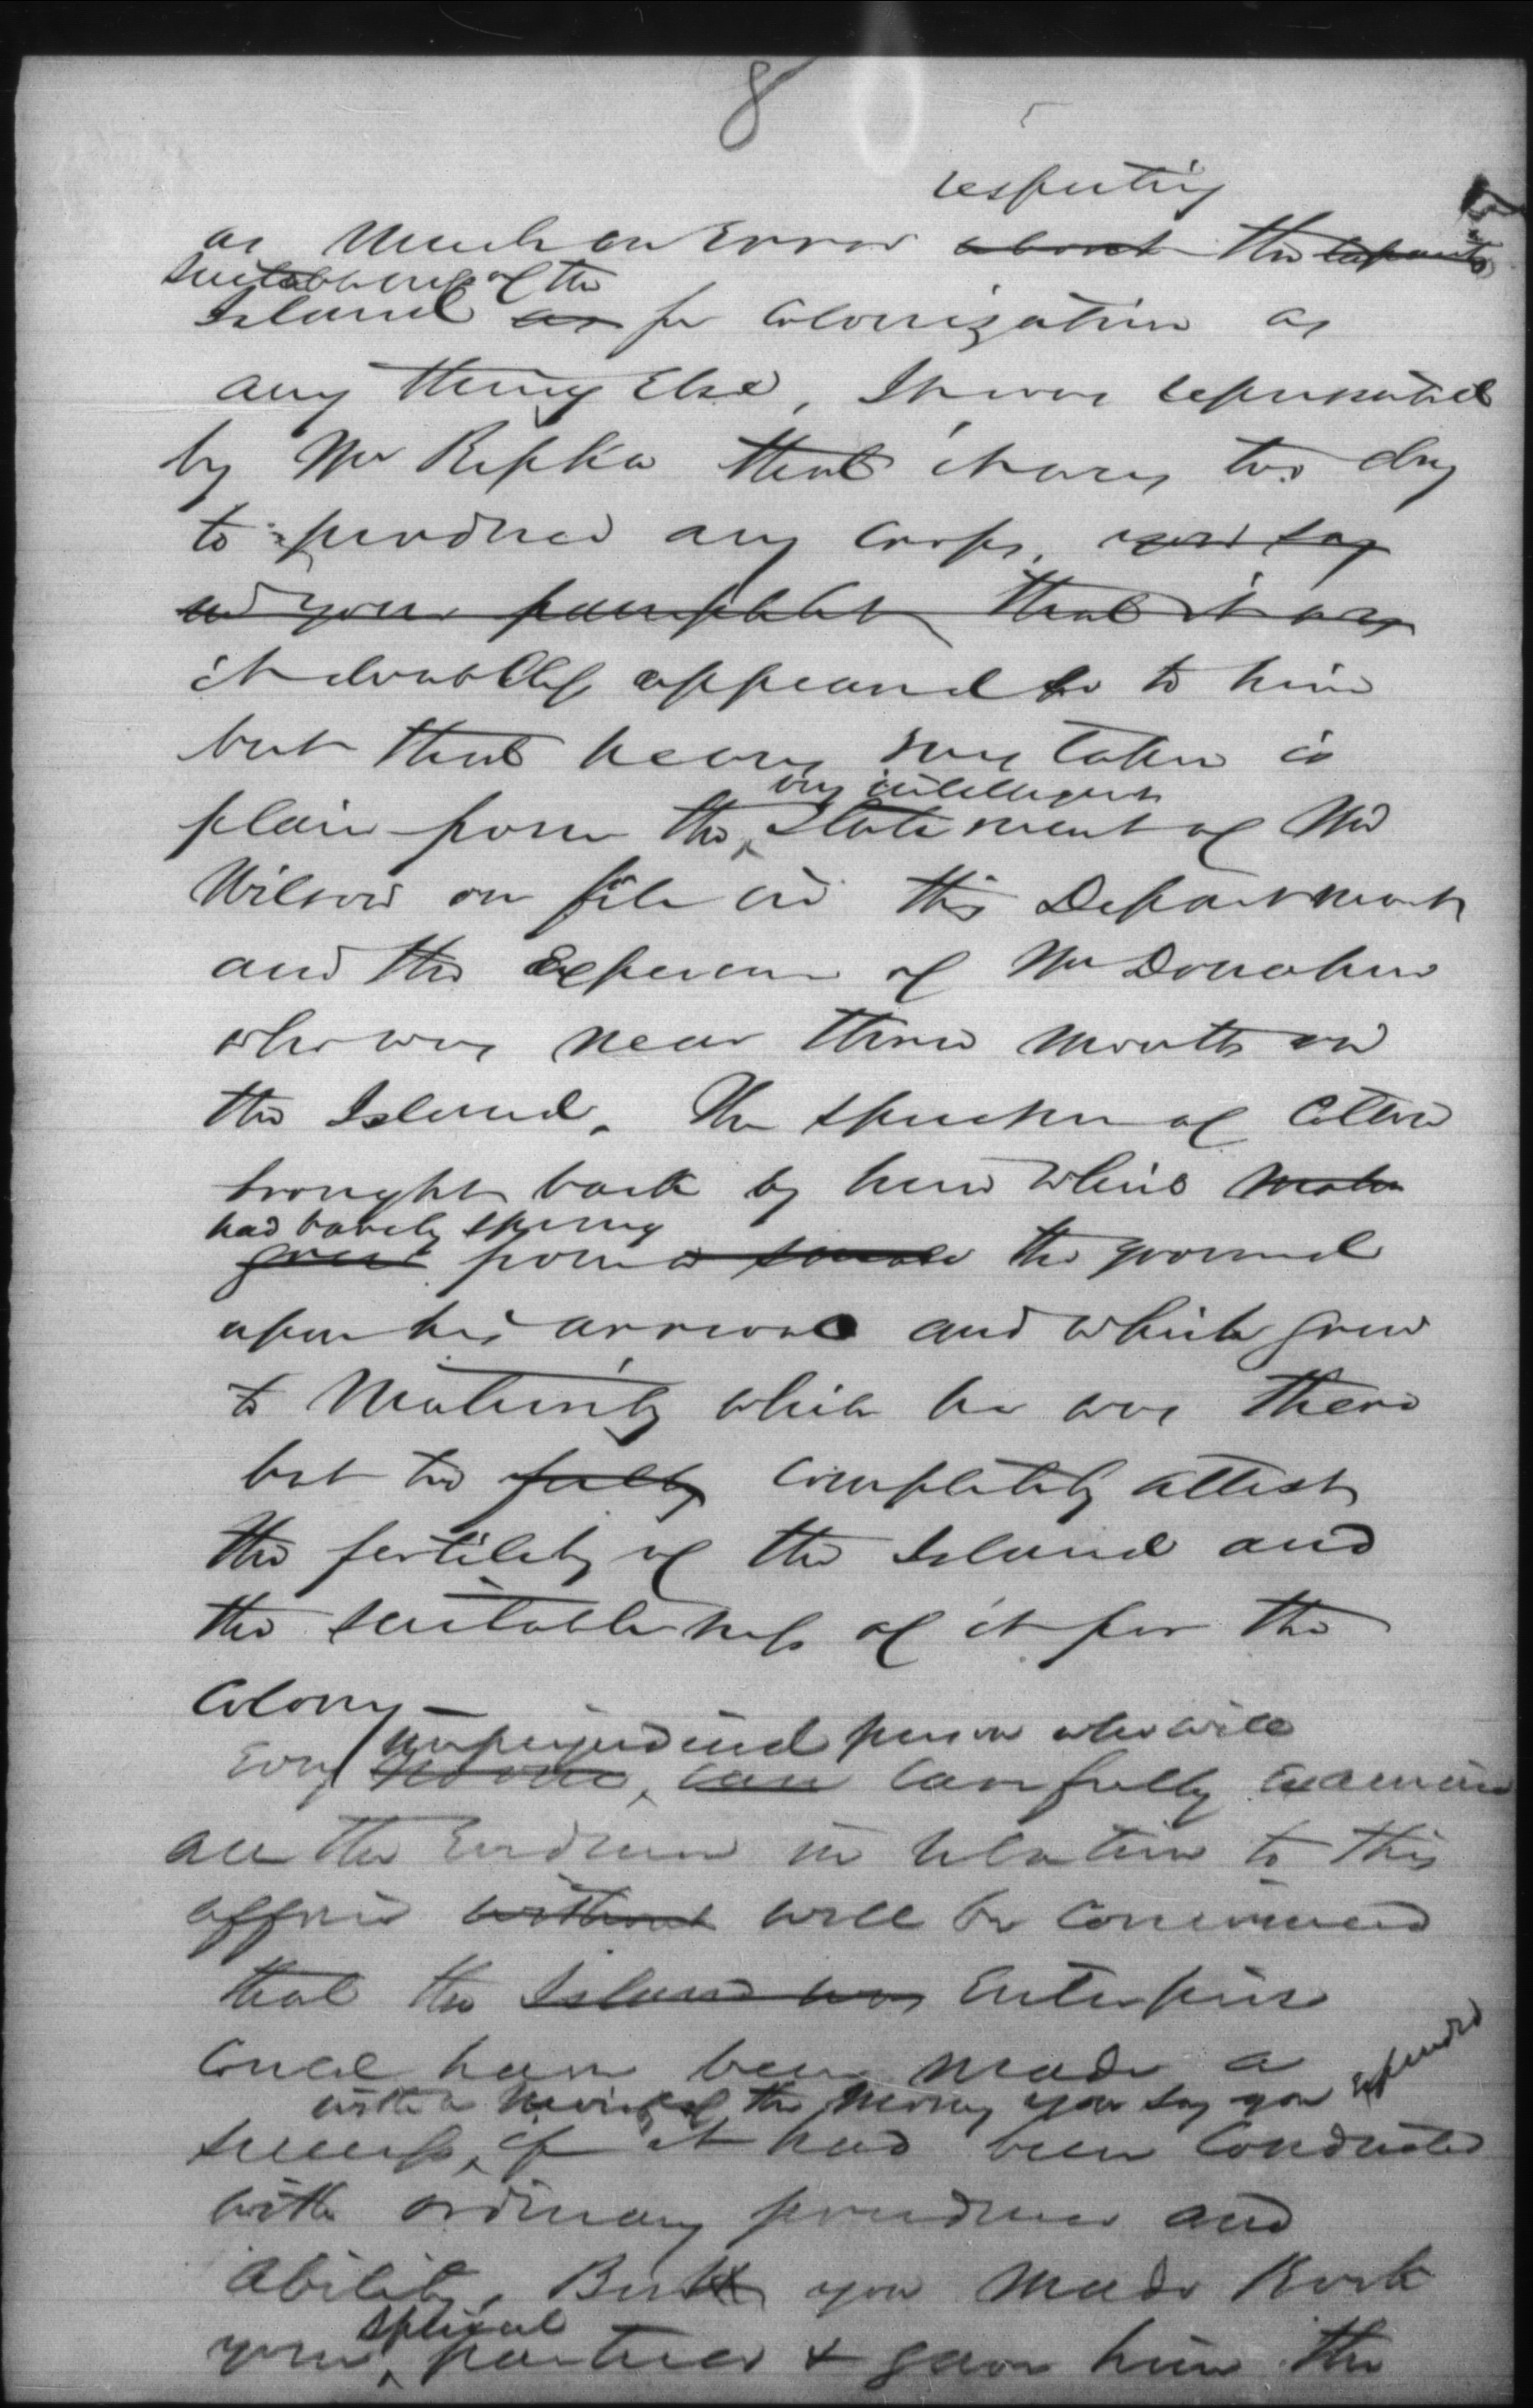 8
respecting
as much an Error about the
suitableness of the
Island as for Colonization as
any thing Else, It was represented
by Mr Ripka that it was too dry
to produce any Crops, you say
in your pamphlet that it was
it doubtless appeared so to him
but that he was mistaken is
very intelligent
plain from the statement of Mr
Wilson on file in this Department
and the Experience of Mr Donohue
who was near three months on
the Island. The specimen of Cotton
brought back by him which
had barely sprung
grew from a the ground
upon his arrival and which grew
to Maturity while he was there
but too fully completely attest
the fertility of the Island and
the suitableness of it for the
Colony —
unprejudiced person who will
Every can carefully Examine
all the Evidence in relation to this
affair without will be convinced
that the Island was Enterprise
Could have been made a
with a moiety of the money you say you Expended
success, if it had been Conducted
with ordinary prudence and
ability, But you made Kock
special
your partner & gave him the